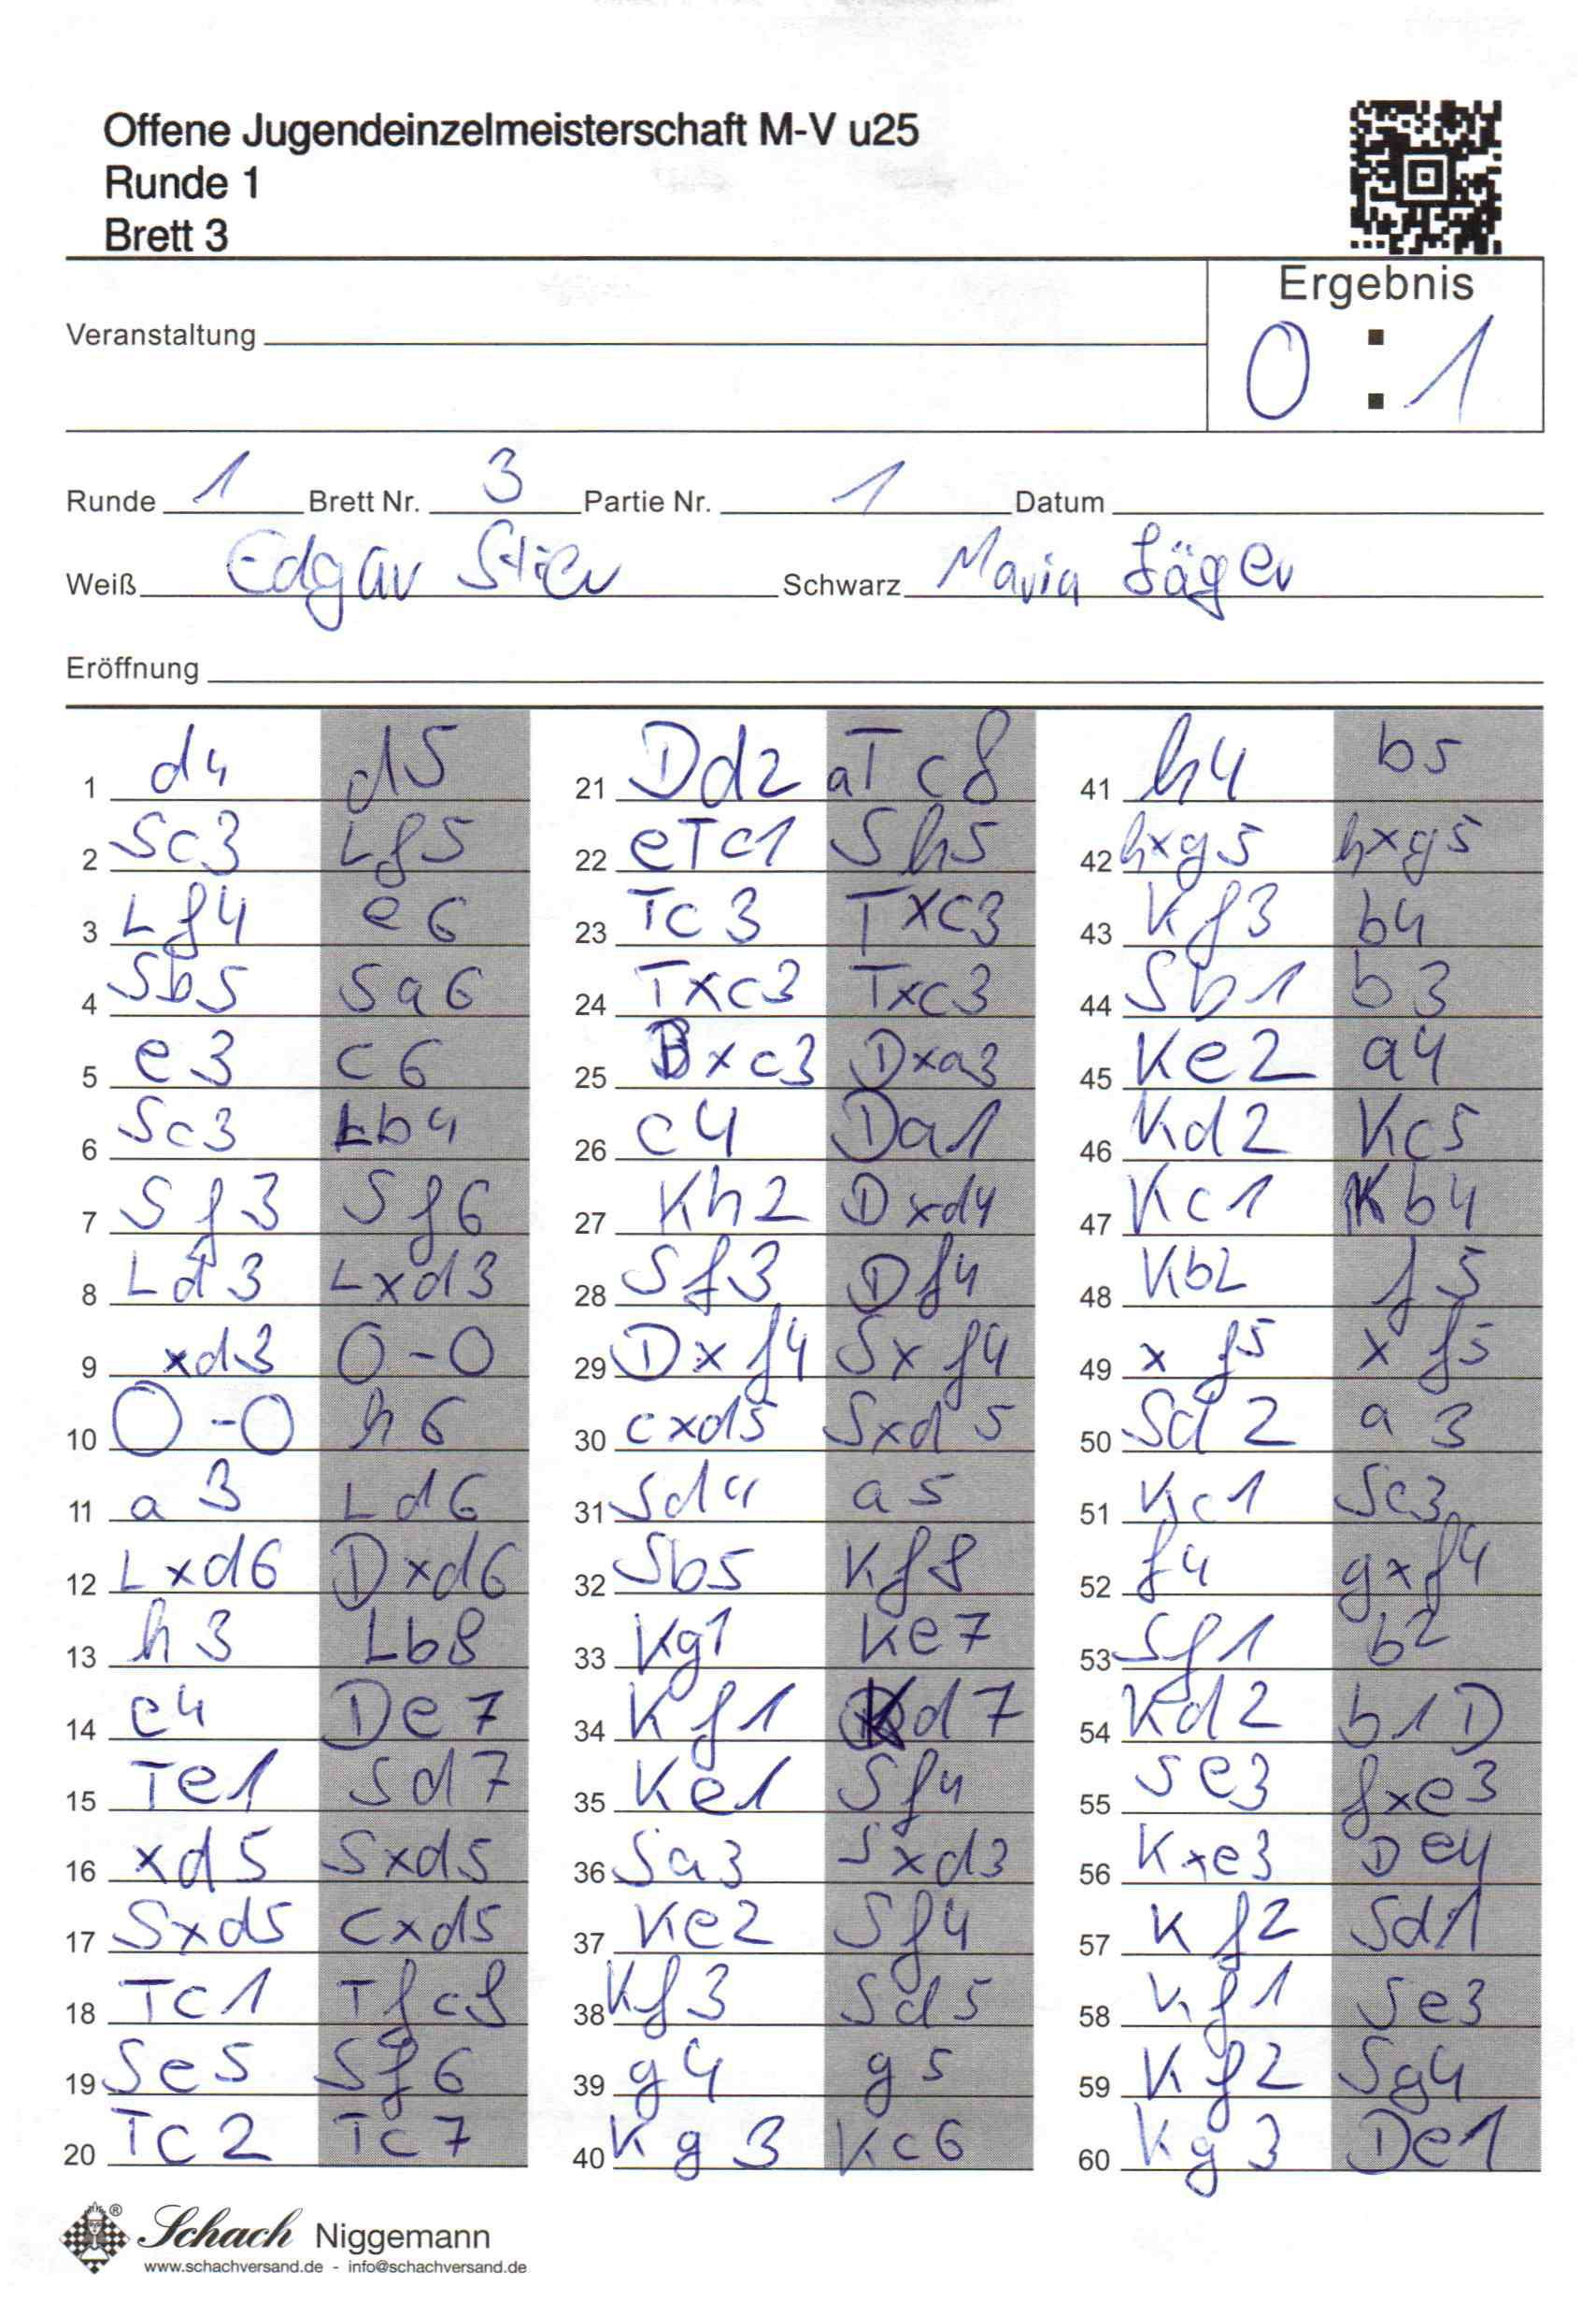 Offene Jugendeinzelmeisterschaft M-V u25
Runde 1
Brett 3
Ergebnis
0 : 1
Veranstaltung
Runde 1 Brett Nr. 3 Partie Nr. 1 Datum
Weiß Edgar Stier Schwarz Maria Jäger
Eröffnung
1 d4 d5
2 Sc3 Lf5
3 Lf4 e6
4 Sb5 Sa6
5 e3 c6
6 Sc3 Lb4
7 Sf3 Sf6
8 Ld3 Lxd3
9 xd3 0-0
10 0-0 h6
11 a3 Ld6
12 Lxd6 Dxd6
13 h3 Lb8
14 e4 De7
15 Te1 Sd7
16 xd5 Sxd5
17 Sxd5 cxd5
18 Tc1 Tfc8
19 Se5 Sf6
20 Tc2 Tc7
21 Dd2 aTc8
22 eTc1 Sh5
23 Tc3 Txc3
24 Txc3 Txc3
25 Dxc3 Dxa3
26 c4 Da1
27 Kh2 Dxd4
28 Sf3 Df4
29 Dxf4 Sxf4
30 cxd5 Sxd5
31 Sd4 a5
32 Sb5 Kf8
33 Kg1 Ke7
34 Kf1 Kd7
35 Ke1 Sf4
36 Sa3 Sxd3
37 Ke2 Sf4
38 Kf3 Sd5
39 g4 g5
40 Kg3 Kc6
41 h4 b5
42 hxg5 hxg5
43 Kf3 b4
44 Sb1 b3
45 Ke2 a4
46 Kd2 Kc5
47 Kc1 Kb4
48 Kb2 f5
49 xf5 xf5
50 Sd2 a3
51 Kc1 Sc3
52 f4 gxf4
53 Sf1 b2
54 Kd2 b1D
55 Se3 fxe3
56 Kxe3 De4
57 Kf2 Sd1
58 Kf1 Se3
59 Kf2 Sg4
60 Kg3 De1
Schach Niggemann
www.schachversand.de - info@schachversand.de